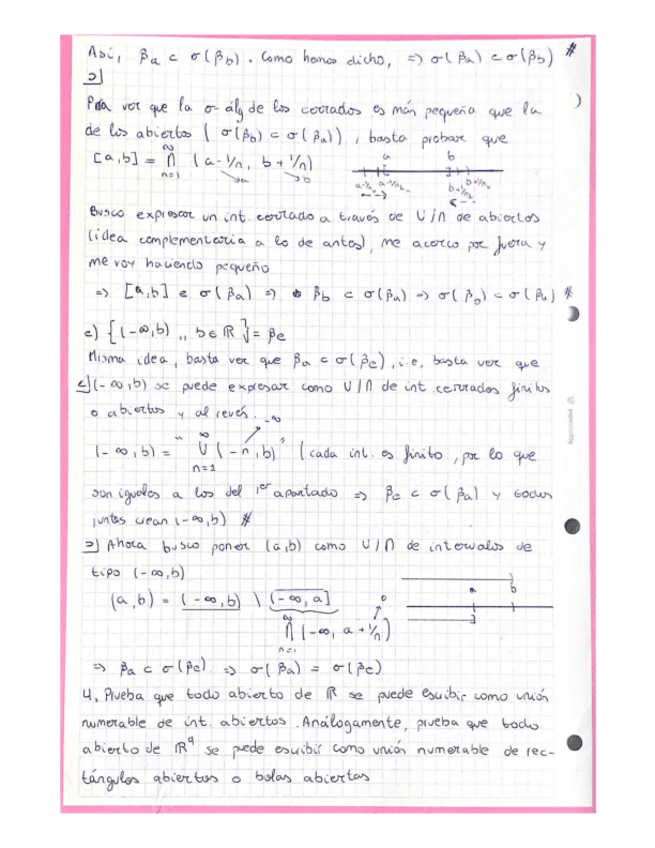 Así, βa ⊂ σ(βb). Como hemos dicho, => σ(βa) ⊂ σ(βb) #
⊃|
Para ver que la σ-álg de los cerrados es más pequeña que la
de los abiertos (σ(βb) ⊂ σ(βa)), basta probar que
[a,b] = ∞∩n=1 (a-1/n, b+1/n)
→a →b
a b
a-1/n a-1/n2 b+1/n2 b+1/n1
Busco expresar un int. cerrado a través de U/∩ de abiertos
(idea complementaria a lo de antes), me acerco por fuera y
me voy haciendo pequeño
=> [a,b] ∈ σ(βa) => βb ⊂ σ(βa) => σ(βb) ⊂ σ(βa) #
c) {(-∞,b) ,, b∈ℝ} = βc
Misma idea, basta ver que βa ⊂ σ(βc), i.e, basta ver que
⊂|(-∞,b) se puede expresar como U/∩ de int cerrados finitos
o abiertos y al revés.
-∞
(-∞,b) = " ∞Un=1 (-n,b) " (cada int. es finito, por lo que
son iguales a los del 1er apartado => βc ⊂ σ(βa) y todos
juntos crean (-∞,b) #
⊃| Ahora busco poner (a,b) como U/∩ de intervalos de
tipo (-∞,b)
(a,b) = (-∞,b) \ (-∞,a]
∞∩n=1 (-∞, a+1/n)
0
a b
=> βa ⊂ σ(βc) => σ(βa) = σ(βc)
4. Prueba que todo abierto de ℝ se puede escribir como unión
numerable de int. abiertos. Análogamente, prueba que todo
abierto de ℝq se pede escribir como unión numerable de rec-
tángulos abiertos o bolas abiertas